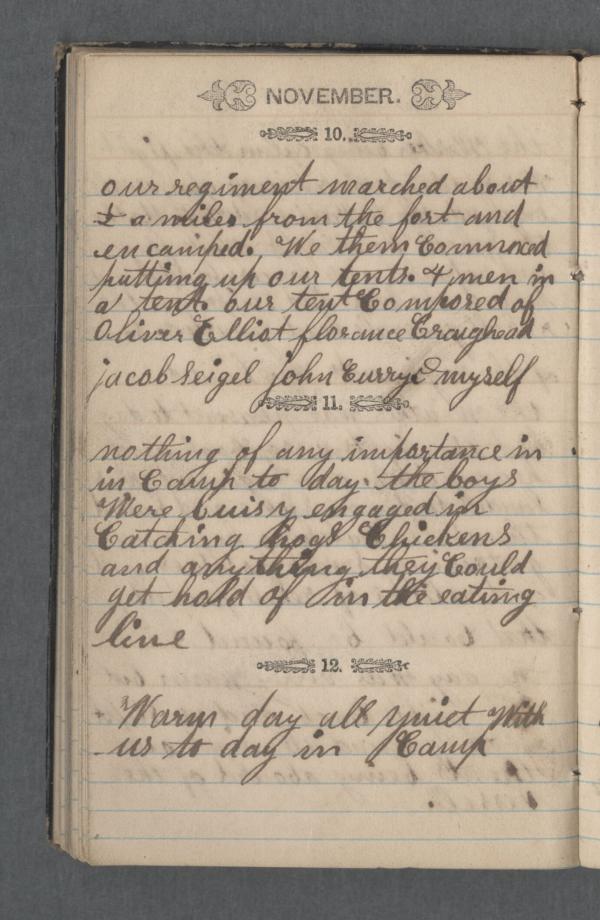 NOVEMBER.
10.
our regiment marched about
½ a miles from the fort and
encamped. We them Commnced
putting up our tents. 4 men in
a tent. our tent Composed of
Oliver Elliot florance Craighead
jacob seigel john Curry & myself
11.
nothing of any importance in
in Camp to day. the boys
Were buisy engaged in
Catching hogs Chickens
and anything they Could
get hold of in the eating
line
12.
Warm day all quiet With
us to day in Camp